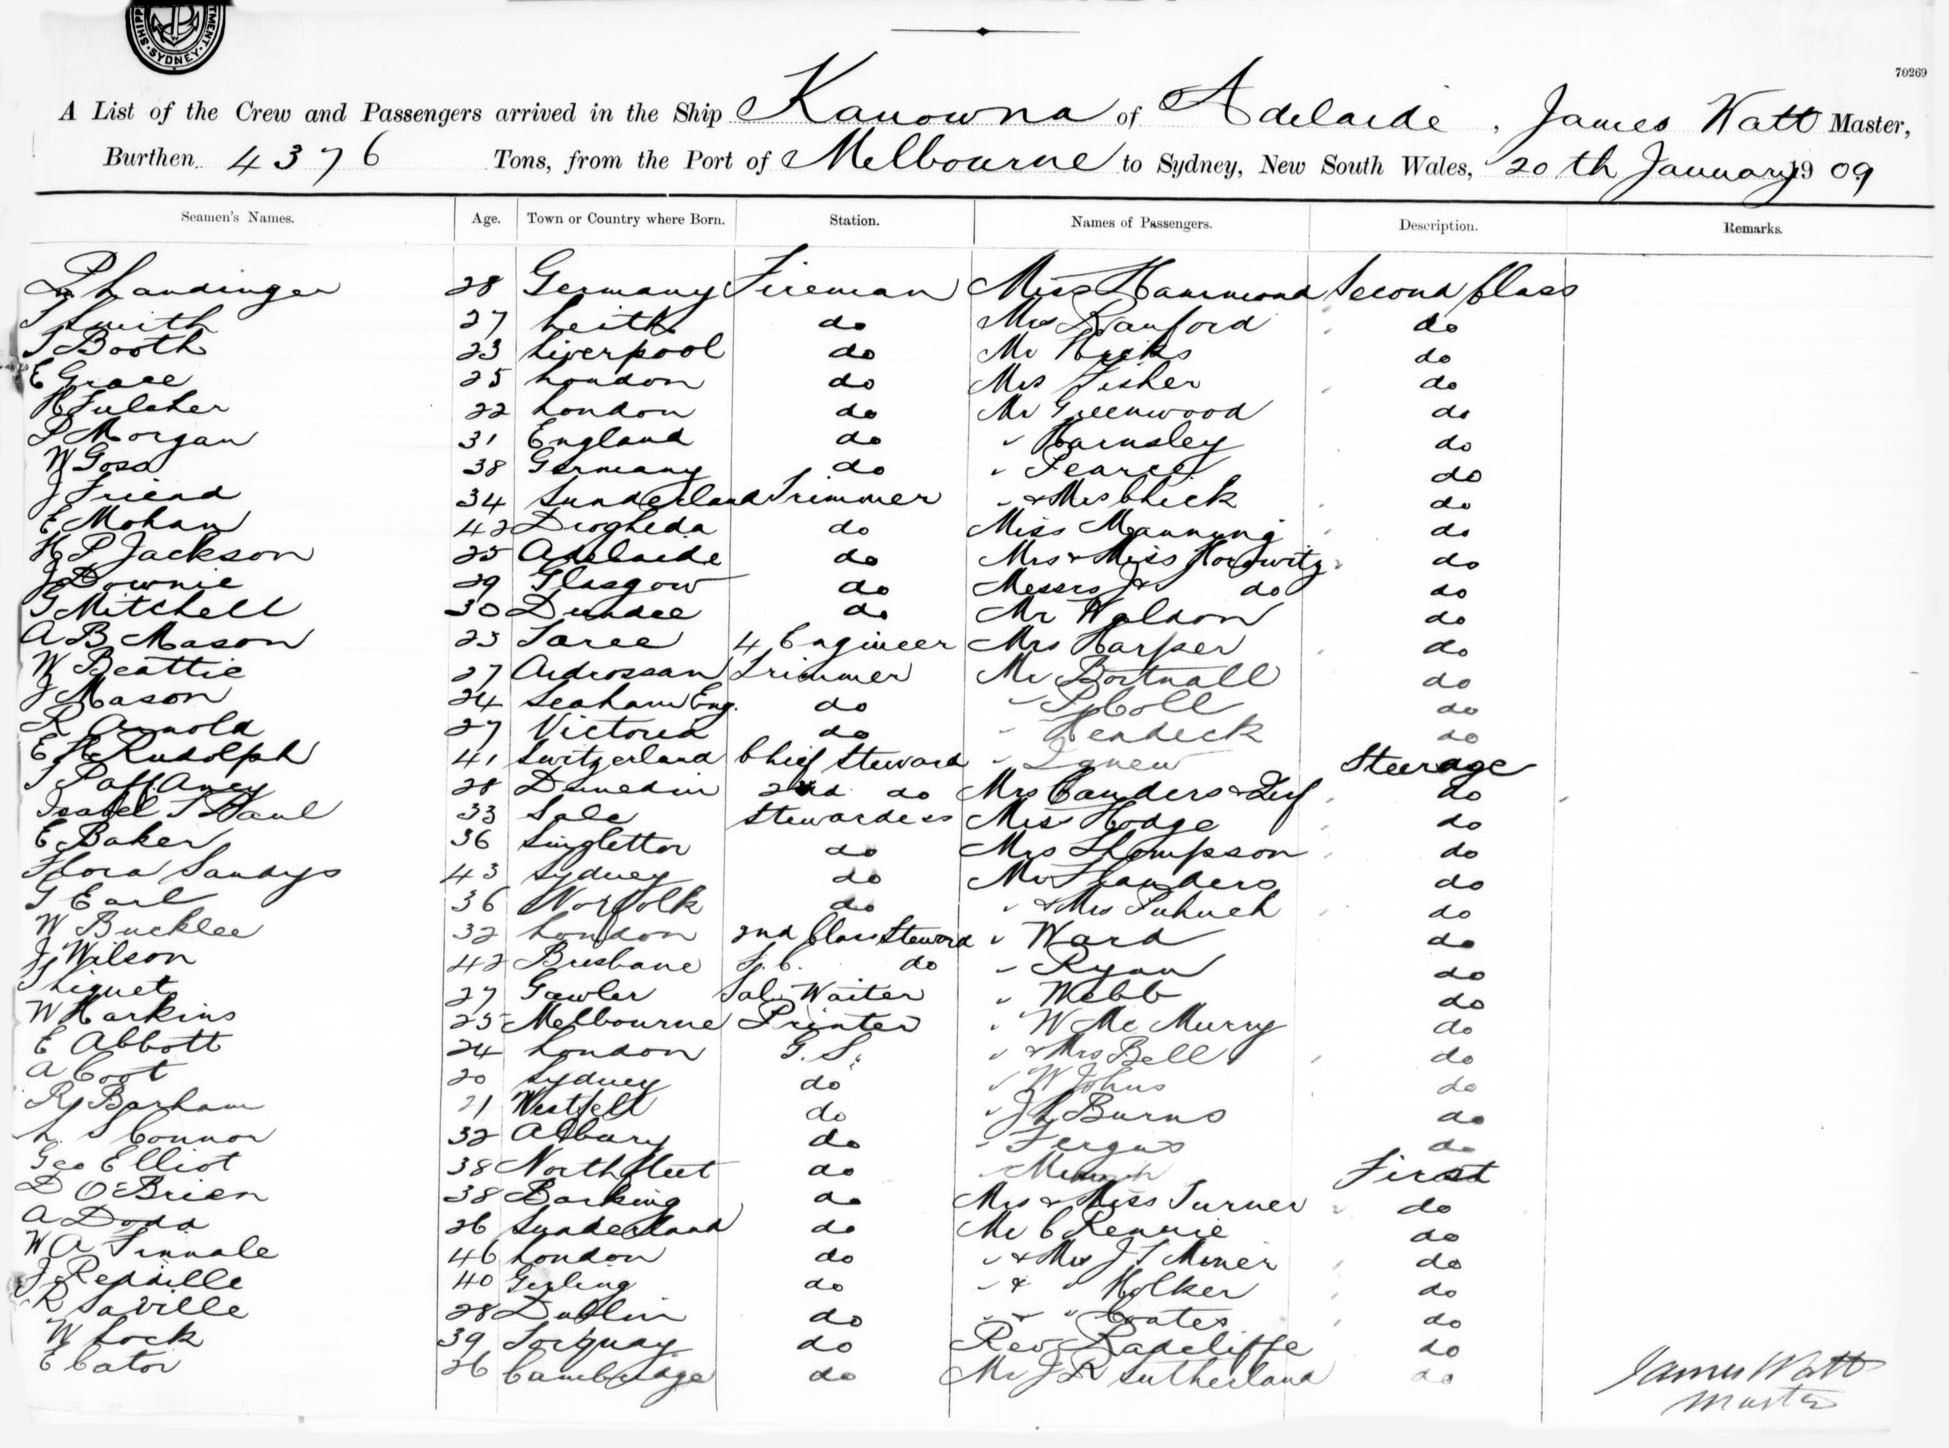 SHIPP TMENT · SYDNEY ·
70269
A List of the Crew and Passengers arrived in the Ship Kanowna of Adelaide, James Watt Master,
Burthen 4376 Tons, from the Port of Melbourne to Sydney, New South Wales, 20th January 1909
Seamen's Names. Age. Town or Country where Born. Station. Names of Passengers. Description. Remarks.
P Landinger 28 Germany Fireman Miss Hammond Second Class
T Smith 27 Leith do Mrs Ranford do
T Booth 23 Liverpool do Mr Hicks do
E Grace 25 London do Mrs Fisher do
H Fulcher 22 London do Mr Greenwood do
P Morgan 31 England do " Harnsley do
W Gosa 38 Germany do " Pearce do
J Friend 34 Sunderland Trimmer " & Mrs Chick do
E Mohan 42 Drogheda do Miss Mannyng do
H P Jackson 25 Adelaide do Mrs & Miss Horowitz do
J Downie 29 Glasgow do Messrs J & do do
G Mitchell 30 Dundee do Mr Waldon do
A B Mason 23 Taree 4 Engineer Mrs Harper do
W Beattie 27 Ardrossan Trimmer Mr Bortnall do
J Mason 24 Seaham Eng. do " Coll do
R Arnold 27 Victoria do " Hendeck do
E H Rudolph 41 Switzerland Chief Steward " Agnew Steerage
T 28 Dunedin 2nd do Mrs Canders & Inf do
Isabel T Haul 33 Sale Stewardess Miss Hodge do
E Baker 36 Singleton do Mrs Thompson do
Flora Sandys 43 Sydney do Mr Flanders do
G Earl 36 Norfolk do " & Mrs do
W Bucklee 32 London 2nd Class Steward " Ward do
J Wilson 42 Brisbane do " Ryan do
T Liquet 27 Gawler Sal. Waiter " Webb do
W Harkins 25 Melbourne Printer " W Mc Murry do
E Abbott 24 London G. S. " & Mrs Bell do
A Coot 20 Sydney do " W Johns do
Barham 21 do " J L Burns do
L. S Connor 32 Albury do " Fergus do
Geo Elliot 38 Northfleet do " First
D O'Brien 38 Barking do Mrs & Miss Turner do
A Dodd 26 Sunderland do Mr C Rennie do
W A Finnale 46 London do " & Mrs J T Miner do
J Redville 40 do " & " Holker do
R Saville 28 Dublin do " & " Coates do
W Lock 39 Torquay do Rev Radcliffe do
E Cator 26 Cambridge do Mr J R Sutherland do
James Watt
Master